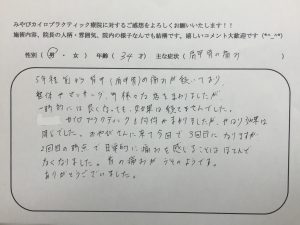 みやびカイロプラクティック療院に対するご感想をよろしくお願いいたします!!
施術内容、院長の人柄・雰囲気、院内の様子なんでも結構です。嬉しいコメント大歓迎です(*^_^*)
性別(男・女) 年齢(34才) 主な症状(肩甲骨の痛み)
5年程前から背中(肩甲骨)の痛みが続いており
整体やマッサージ、可様々な店をまわりましたが
一時的には良くなっても、効果は続きませんでした。
カイロプラクティックも何件かまわりましたが、やはり効果は
同じでした。おやびんに来て今回で3回目になりますが
2回目の時点で日常的に痛みを感じることはほとんど
なくなりました。背の痛みがうそのようです。
ありがとうございました。